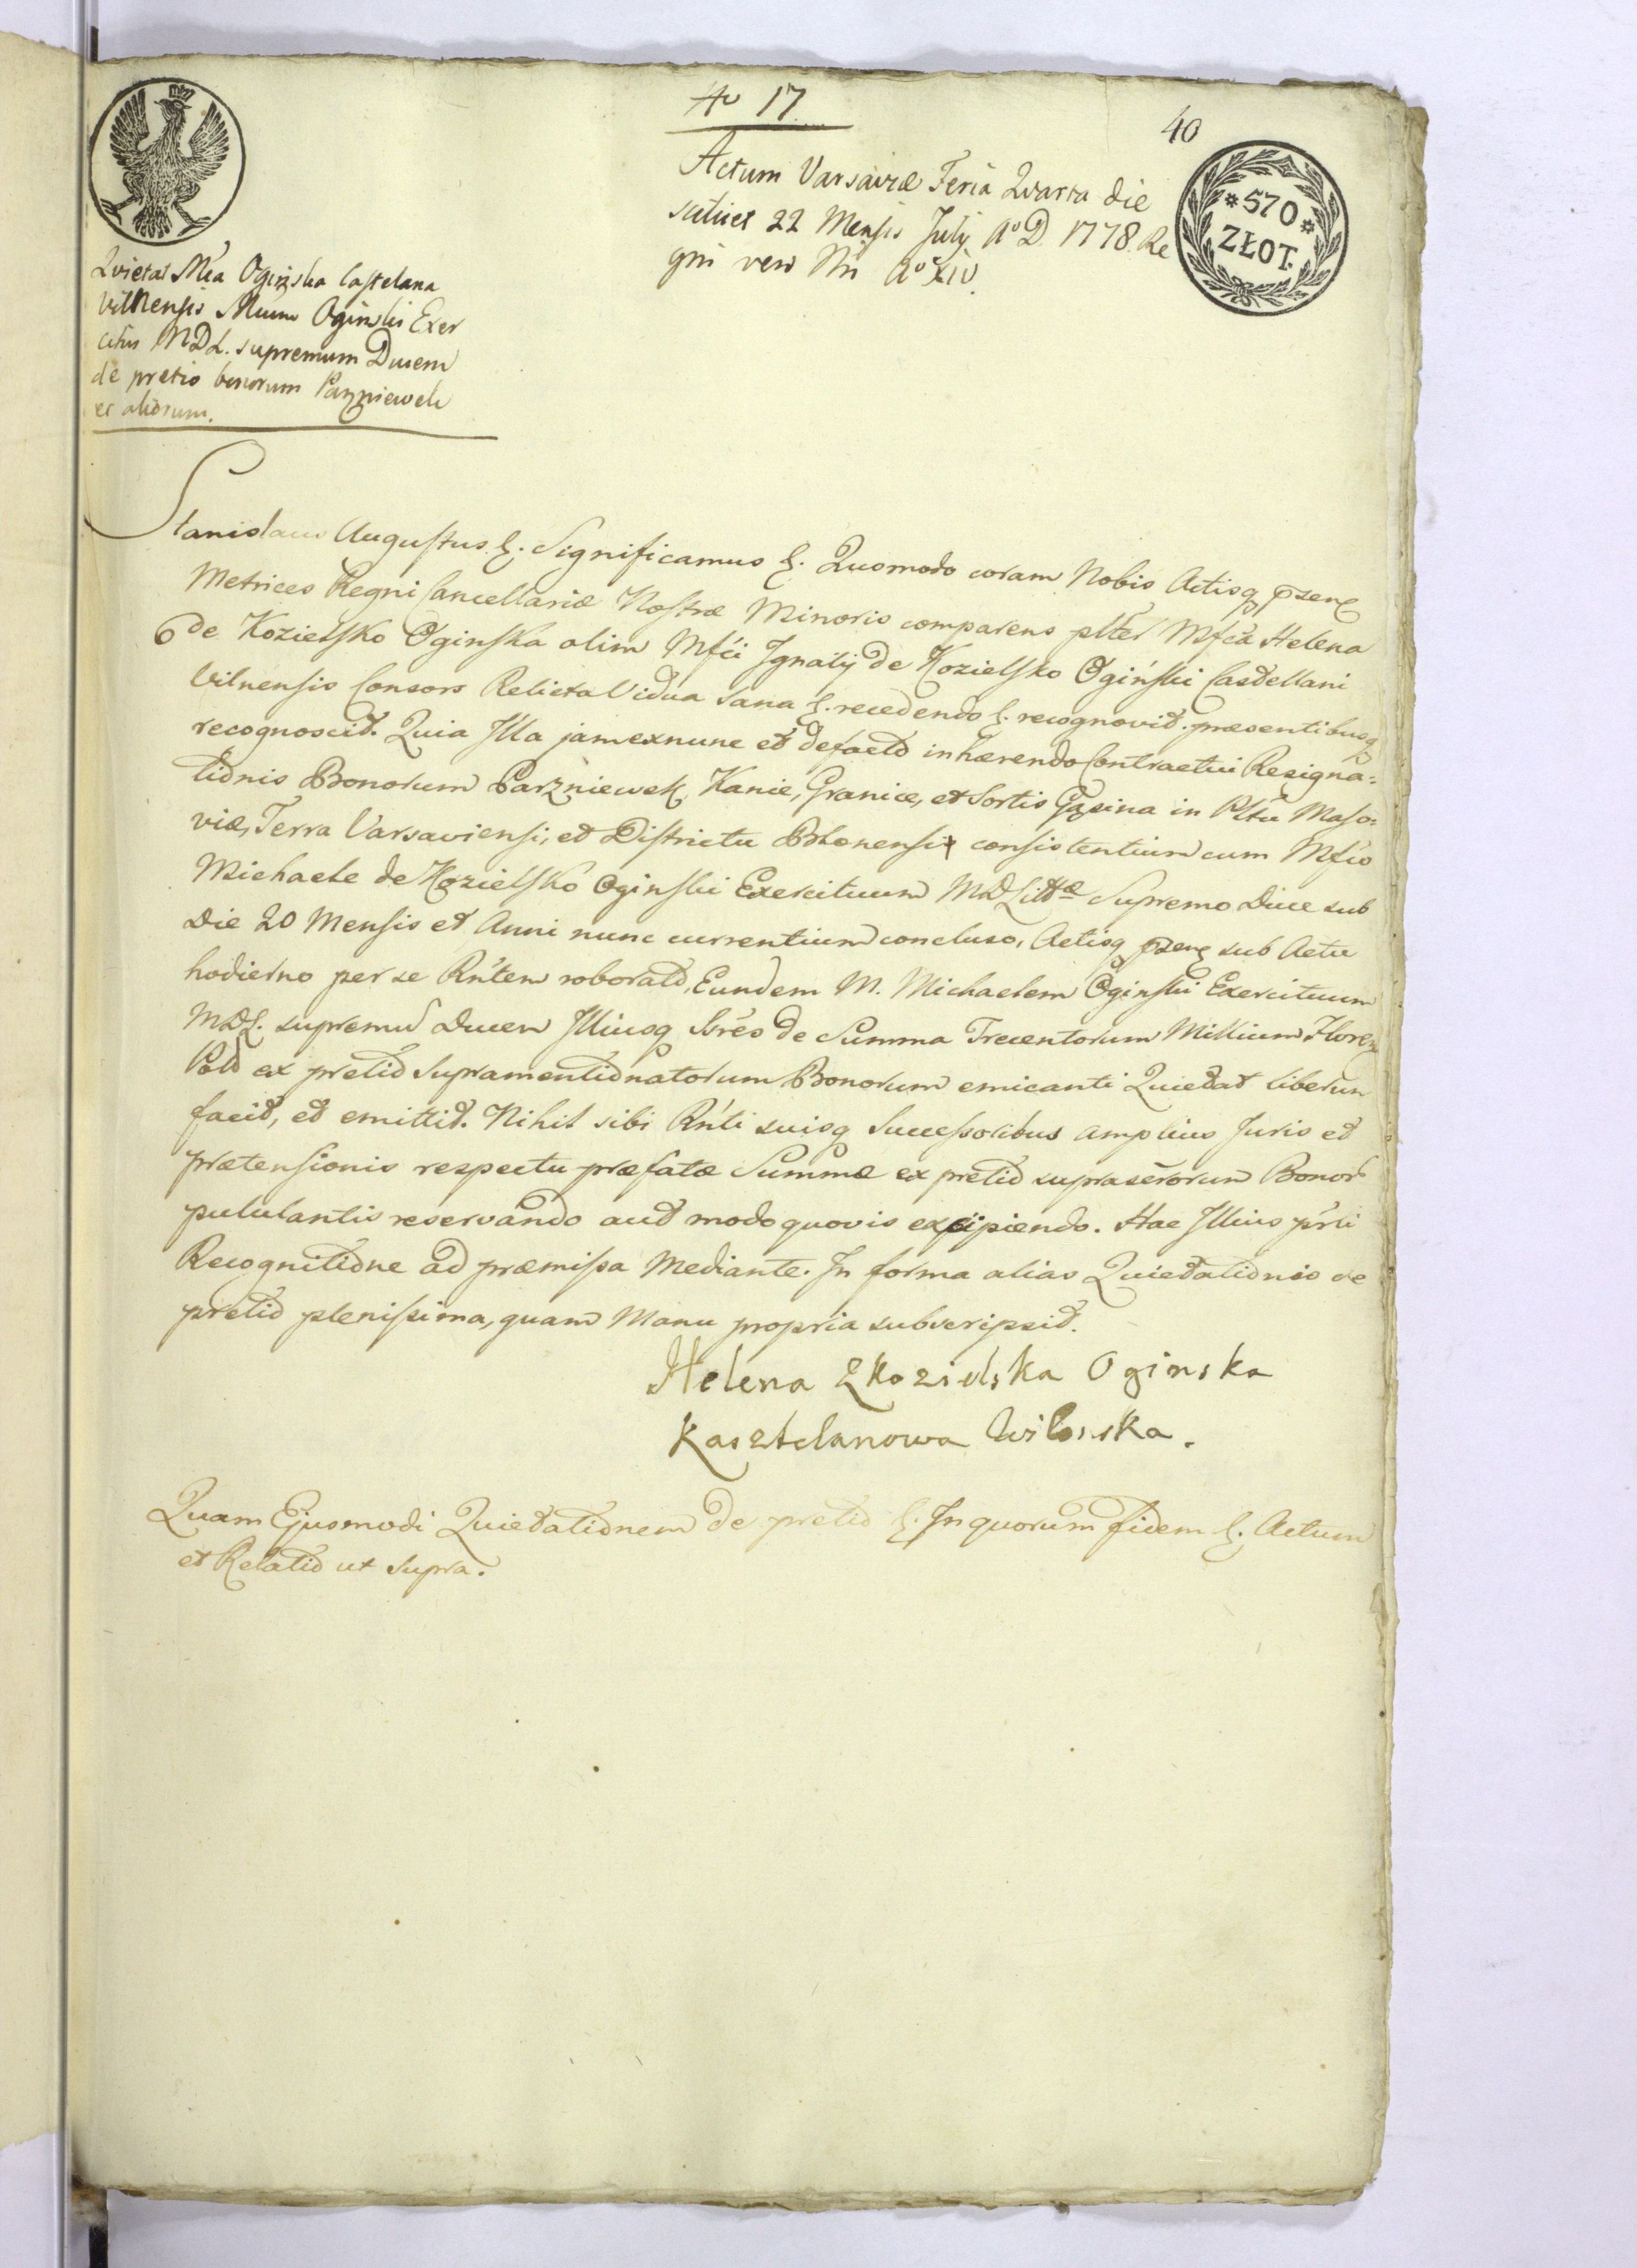 No 17
40
*570*
ZŁOT.
Actum Varsaviæ Feria Quarta die
scilicet 22 Mensis July Ao D. 1778. Re
gni vero Nri Ao XIV.
Quietat Mca Oginska Castelana
Vilnensis Mcum Oginski Exer
citus MDL. supremum Ducem
de pretio bonorum Parzniewek
et aliorum.
Stanislaus Augustus &. Significamus &. Quomodo coram Nobis Actisq pzen
Metrices Regni Cancellariæ Nostræ Minoris comparens plter Mfca Helena
de Kozielsko Oginska olim Mfci Ignatij de Kozielsko Ogiński Castellani
Vilnensis Consors Relicta Vidua sana &. recedendo &. recognovit. præsentibusq
recognoscit. Quia Illa jam exnunc et defacto inhærendo Contractui Resigna=
tionis Bonorum Parzniewek, Kanie, Granice, et Sortis Gąsina in Pltu Maso=
viæ, Terra Varsaviensi, et Districtu Blonensi consistentium cum Mfco
Michaele de Kozielsko Oginski Exercituum MDLittæ Supremo Duce sub
Die 20 Mensis et Anni nunc currentium concluso, Actisq pzen sub Actu
hodierno per se Rńtem roborato, Eundem M. Michaelem Oginski Exercituum
MDL. supremu Ducem Illiusq Sśres de Summa Trecentorum Millium Floren
Pol ex pretio Supramentionatorum Bonorum emicanti Quietat liberum
facit, et emittit. Nihil sibi Rńti suisq Successoribus amplius Juris et
prætensionis respectu præfatæ Summæ ex pretio suprascrorum Bonor
pululantis reservando aut modo quovis excipiendo. Hac Illius prśti
Recognitione ad præmissa Mediante. In forma alias Quietationis de
pretio plenissima, quam Manu propria subscripsit.
Helena Zkozielska Oginska
Kasztelanowa Wilenska.
Quam Ejusmodi Quietationem de pretio &. In quorum fidem &. Actum
et Relatio ut supra.